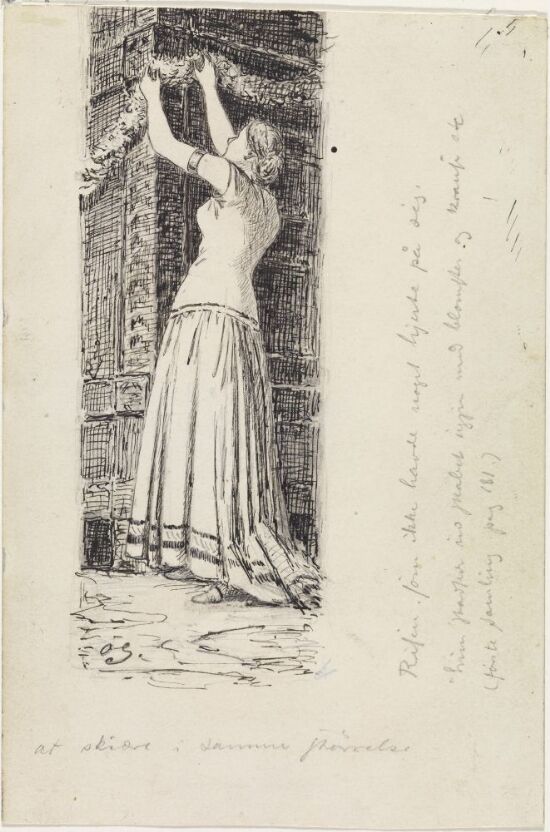 Risen, som ikke havde noget hjerte på sig.
"hun stadser nu skabet igjen med blomster og krandse etc
(første samling pag 181.)
OS.
at skiære i samme størrelse